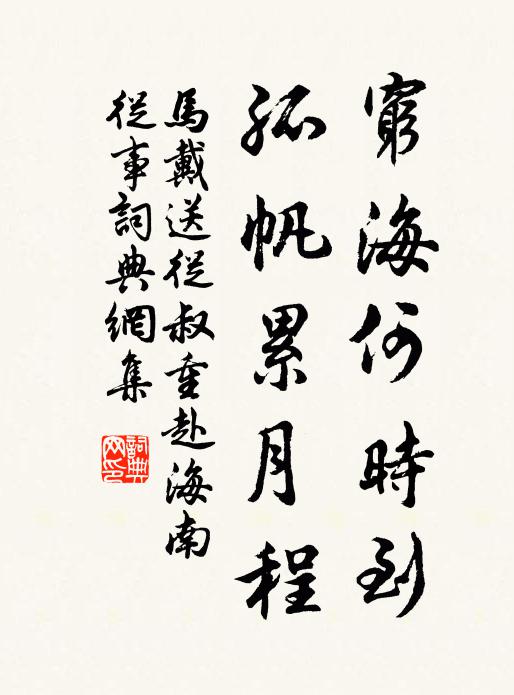 窮海何時到
孤帆累月程
馬戴送從叔重赴海南
從事詞典網集
詞典网印